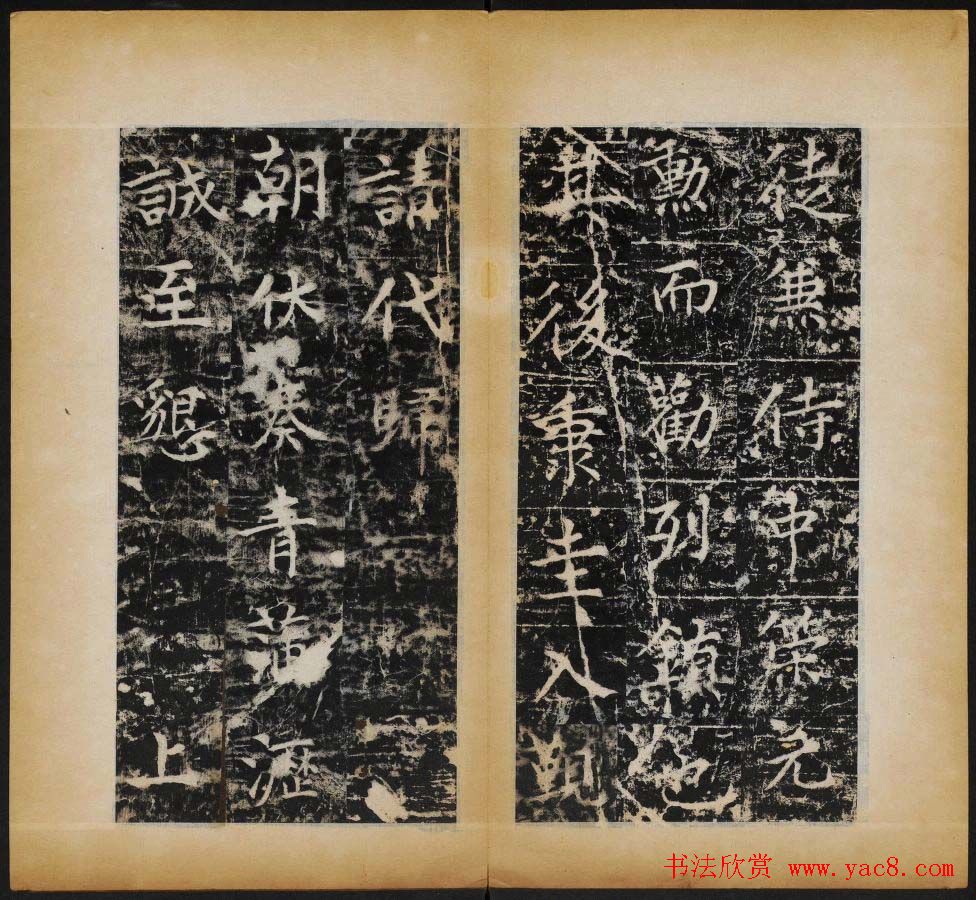 徒兼侍中策元
勳而勸列鎮也
其後秉圭入覲
請代歸
朝伏奏青蒲瀝
誠至懇 上
书法欣赏 www.yac8.com